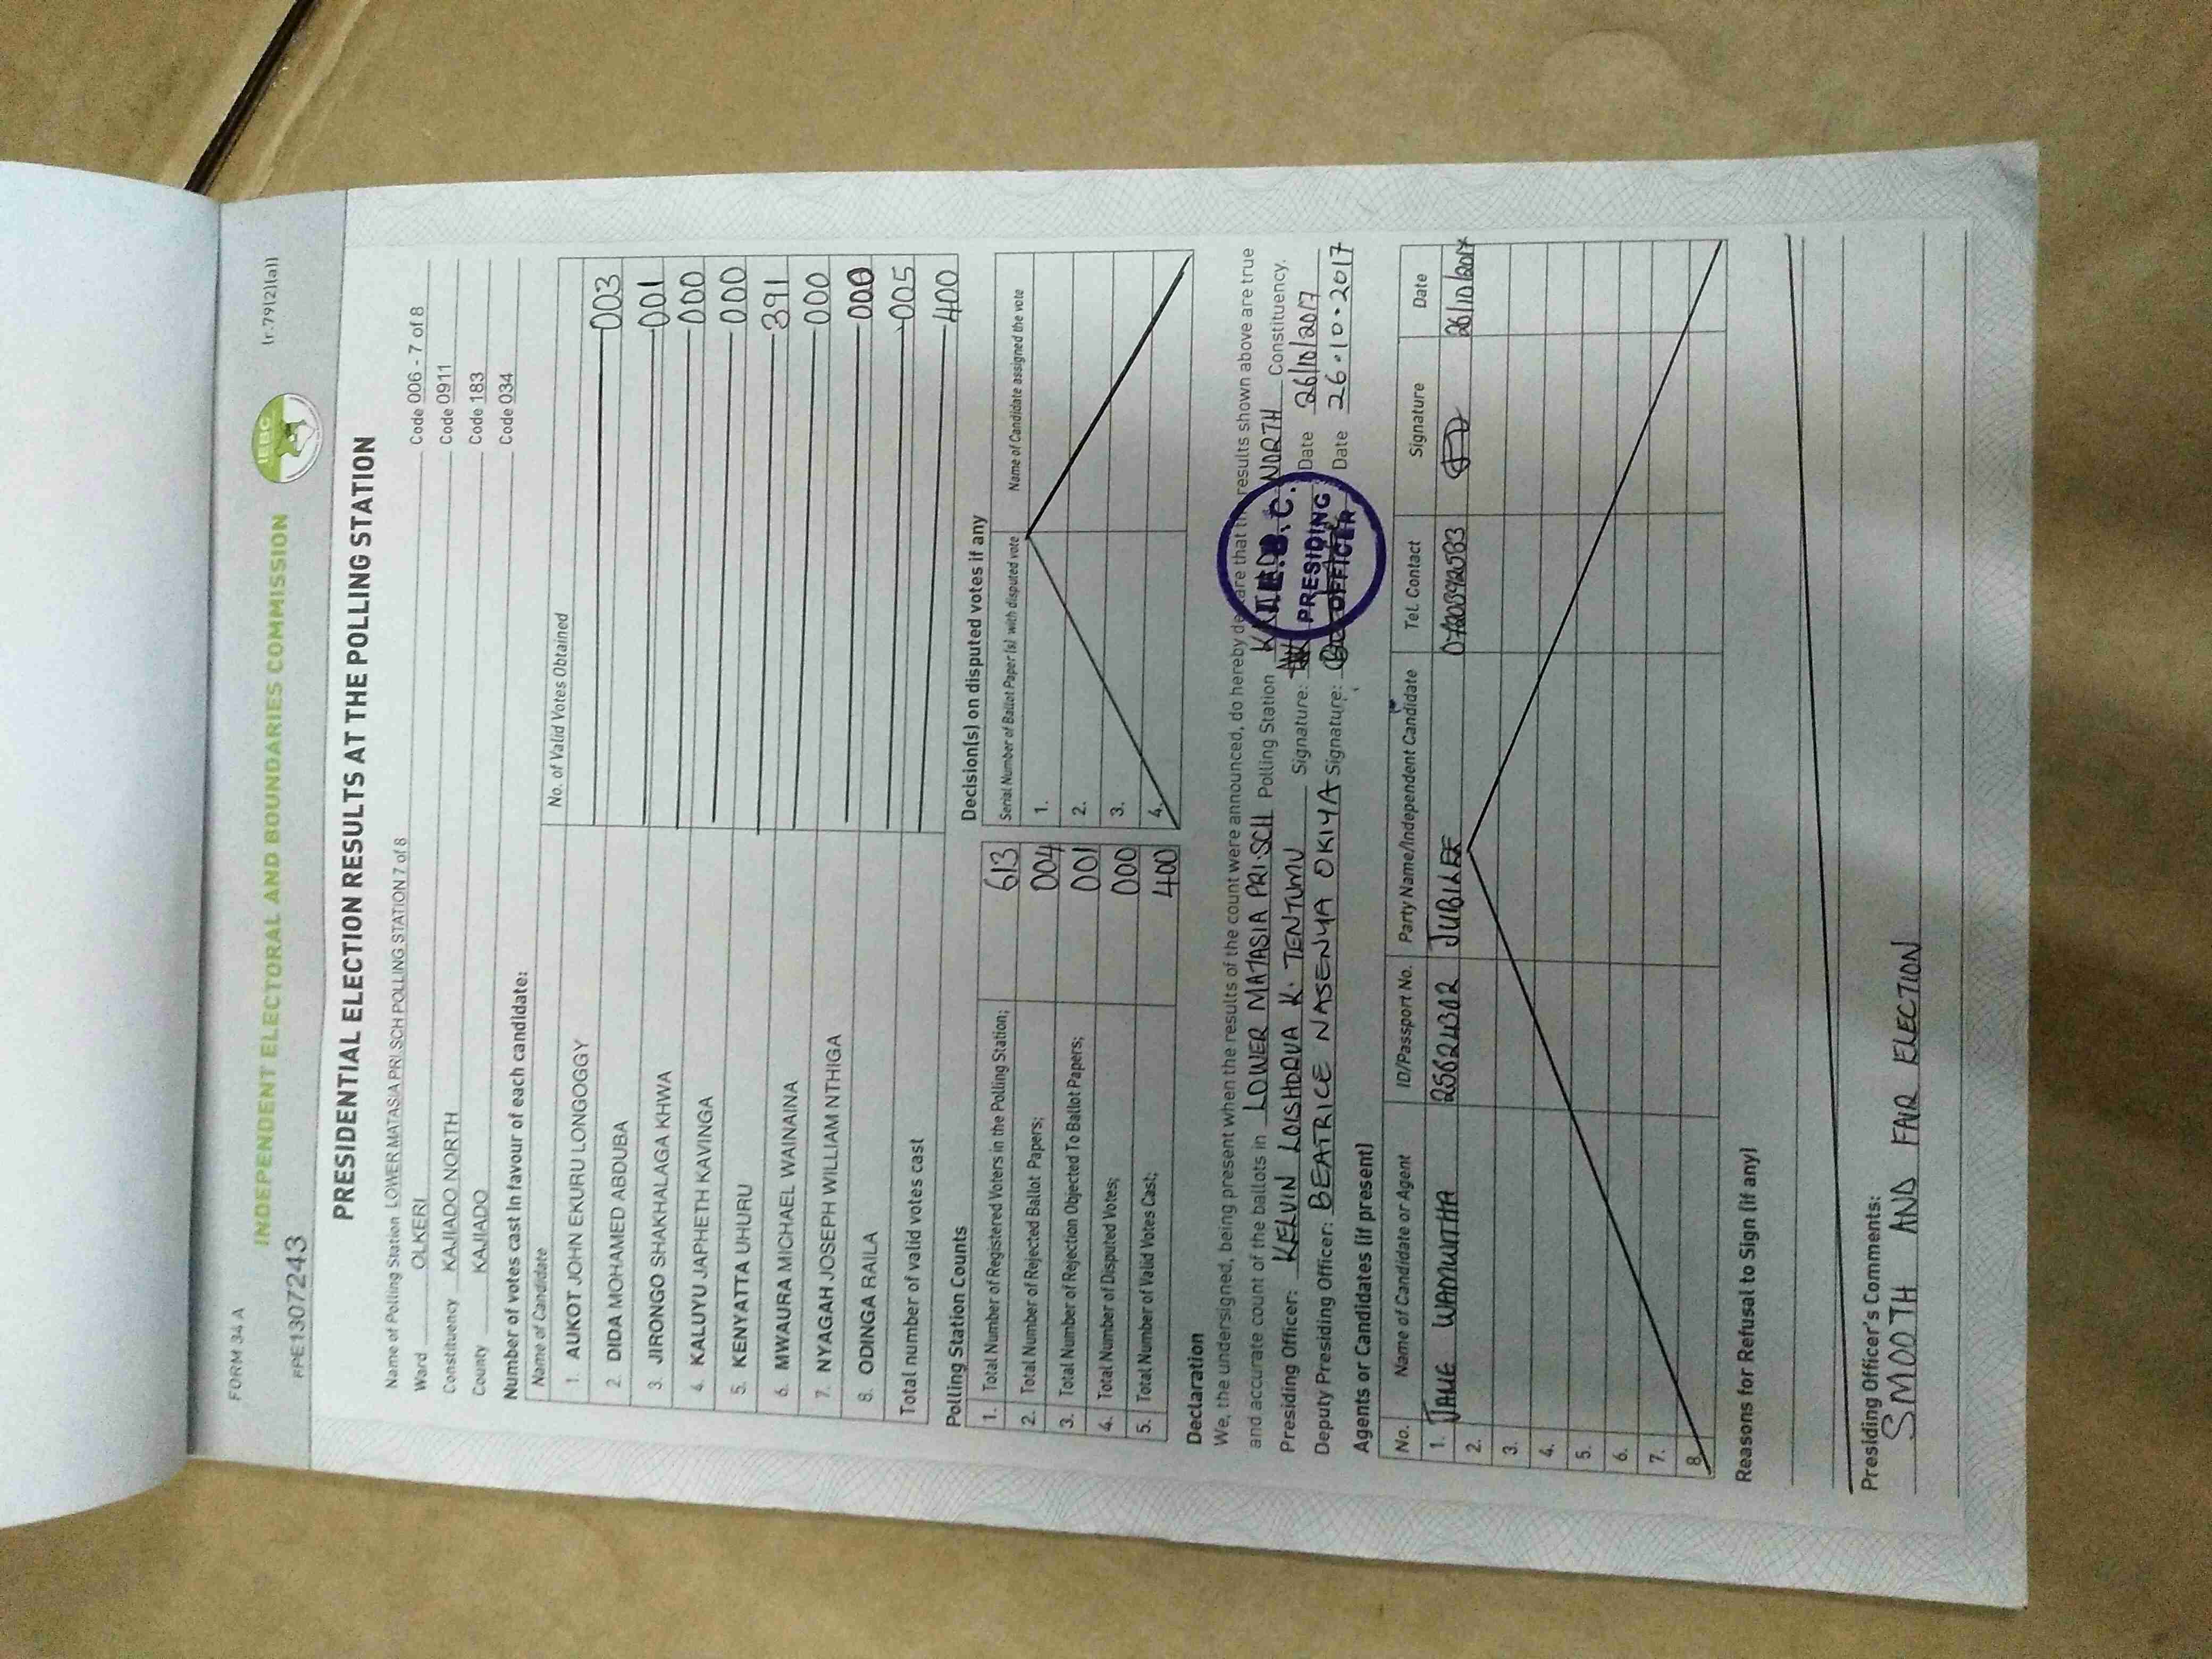 FORM 34 A
(r.79(2)(a))
INDEPENDENT ELECTORAL AND BOUNDARIES COMMISSION
IEBC
PPE1307243
PRESIDENTIAL ELECTION RESULTS AT THE POLLING STATION
Name of Polling Station LOWER MATASIA PRI.SCH POLLING STATION 7 of 8 Code 006 - 7 of 8
Ward OLKERI Code 0911
Constituency KAJIADO NORTH Code 183
County KAJIADO Code 034
Number of votes cast in favour of each candidate:
Name of Candidate No. of Valid Votes Obtained
1. AUKOT JOHN EKURU LONGOGGY 003
2 DIDA MOHAMED ABDUBA 001
3. JIRONGO SHAKHALAGA KHWA 000
4. KALUYU JAPHETH KAVINGA 000
5. KENYATTA UHURU 391
6. MWAURA MICHAEL WAINAINA 000
7. NYAGAH JOSEPH WILLIAM NTHIGA 000
8. ODINGA RAILA 005
Total number of valid votes cast 400
Polling Station Counts
1. Total Number of Registered Voters in the Polling Station; 613
2. Total Number of Rejected Ballot Papers; 004
3. Total Number of Rejection Objected To Ballot Papers; 001
4. Total Number of Disputed Votes; 000
5. Total Number of Valid Votes Cast; 400
Decision(s) on disputed votes if any
Serial Number of Ballot Paper(s) with disputed vote Name of Candidate assigned the vote
1.
2.
3.
4.
Declaration
We, the undersigned, being present when the results of the count were announced, do hereby declare that the results shown above are true
and accurate count of the ballots in LOWER MATASIA PRI.SCH Polling Station NORTH Constituency.
Presiding Officer: KELVIN LOISHORUA K. TENTUMU Signature: Date 26/10/2017
Deputy Presiding Officer: BEATRICE NASENYA OKIYA Signature: Date 26.10.2017
PRESIDING
OFFICER
Agents or Candidates (if present)
No. Name of Candidate or Agent ID/Passport No. Party Name/Independent Candidate Tel. Contact Signature Date
1. JANE WAMUITHA 25624302 JUBILEE 0720392583 26/10/2017
2.
3.
4.
5.
6.
7.
8.
Reasons for Refusal to Sign (if any)
Presiding Officer's Comments:
SMOOTH AND FAIR ELECTION